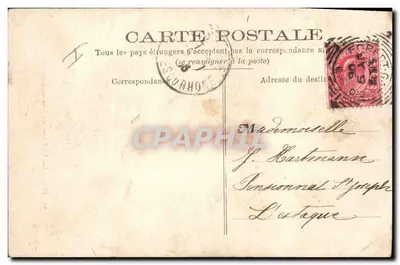 CARTE POSTALE
Tous les pays étrangers n'acceptent pas la correspondance au
(se renseigner à la poste)
Correspondance
Adresse du destin
DU RHONE
CPAPHIL
Mademoiselle
J. Hartmann
Pensionnat St Joseph
L'estaque